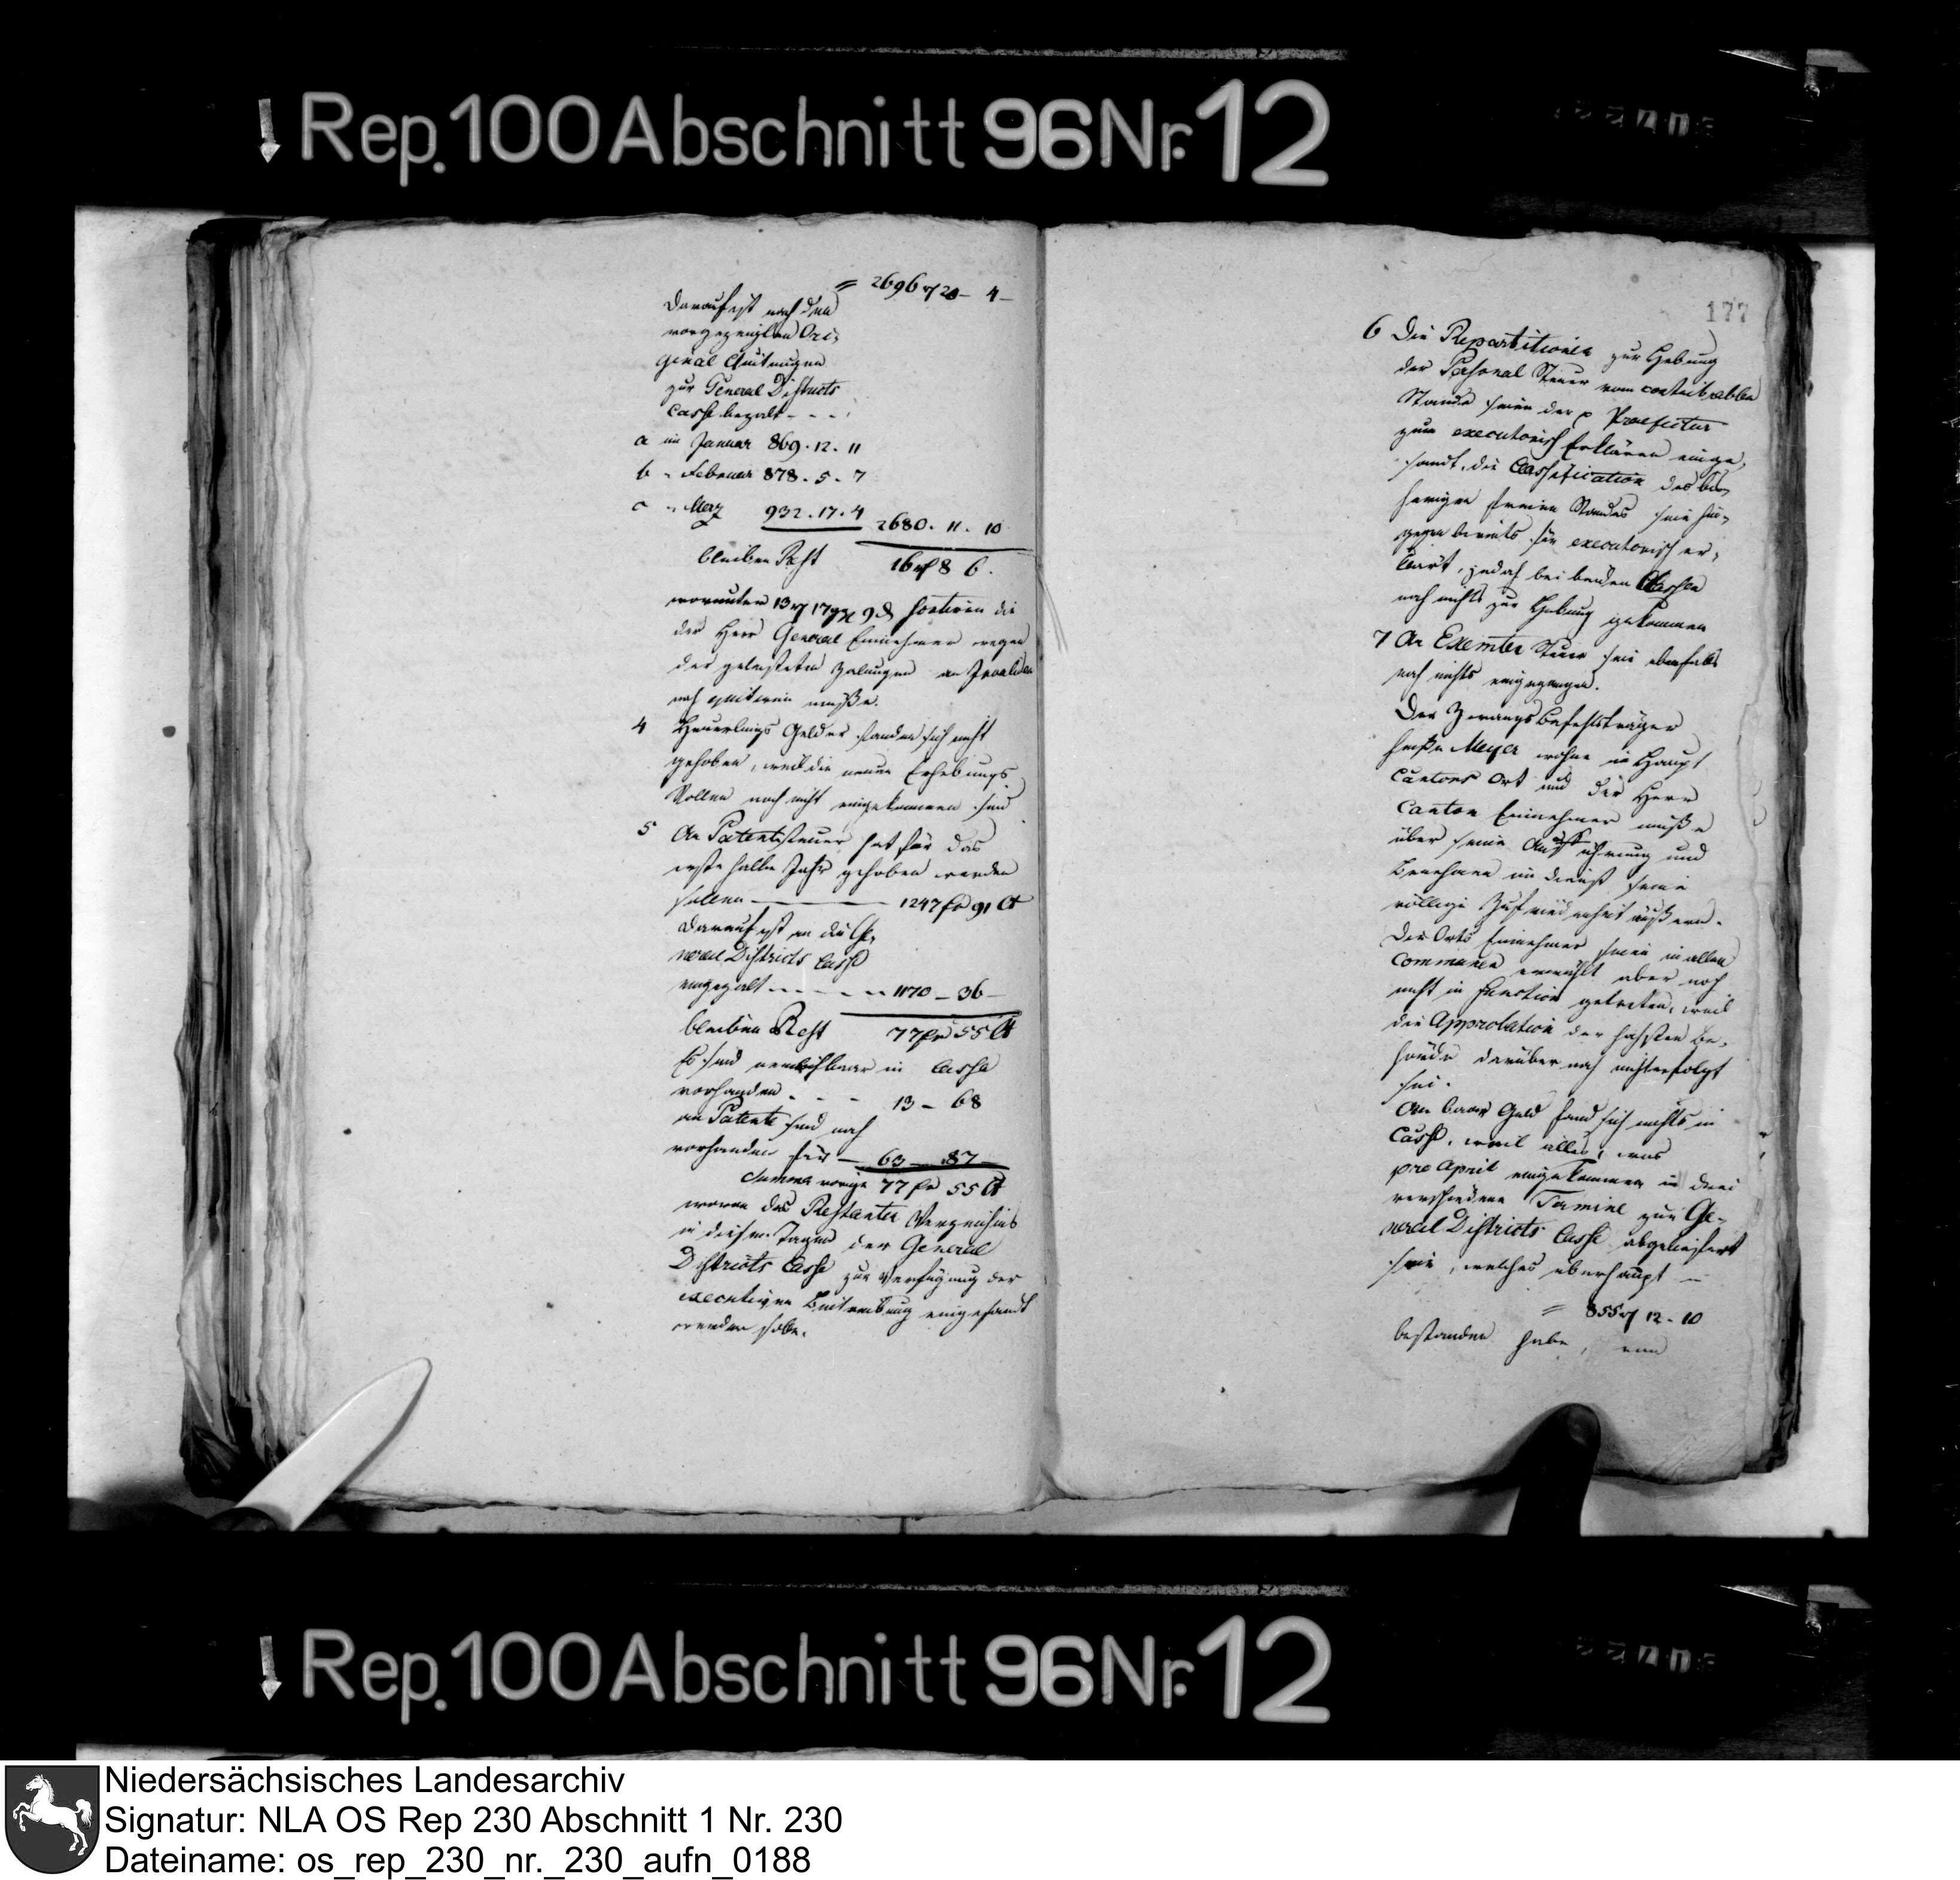 Rep. 100 Abschnitt 96 Nr. 12
= 2696 rf 20 - 4 -
Darauf ist nach den
vorgezeigten Ori-
ginal Quitungen
zur General Districts
Casse bezalt - - -
a im Januar 869. 12. 11
b " Februar 878. 5. 7
c " Merz 932. 17. 4
2680. 11. 10
bleiben Rest 16 rf 8 6.
worunter 13 rf 17 9 die
der Herr General Einnehmer wegen
der geleisteten Zalungen an Invaliden
noch quitiren müsse.
4 Heuerlings Gelder standen sich nicht
gehoben, weil die neuen Erhebungs
Rollen noch nicht eingekommen sind
5 An Patentsteuer hat für das
erste halbe Jahr gehoben werden
sollen — 1247 fr 91 Ct
Darauf ist an die Ge-
neral Districts Casse
eingezalt - - - - 1170 - 36 -
bleiben Rest 77 fr 55 Ct
Es sind nemlich baar in Casse
vorhanden - - - 13 - 68
an Patente sind noch
vorhanden für — 63 - 87
Summa vorige 77 fr 55 Ct
wovon das Restanten Verzeichnis
in diesen Tagen der General
Districts Casse zur Verfügung der
executiven Beitreibung eingesandt
werden solle.
177
6 Die Repartitionen zur Hebung
der Personal Steuer vom contribuablen
Stande seien der p Praefectur
zum executorisch Erklären einge-
sandt, die Classification des bis-
herigen freien Standes sei hin-
gegen bereits für executorisch er-
klärt, jedoch bei beiden Classen
noch nichts zur Hebung gekommen
7 An Exemten Steuer sei ebenfalls
noch nichts eingegangen.
Der Zwangs Befehlsträger
heiße Meyer wohne in Haupt
Cantons Ort und der Herr
Canton Einnehmer müsse
über seine Aufführung und
Benehmen im Dienst seine
völlige Zufriedenheit äußern.
Der Orts Einnehmer seien in allen
Communen erwählt aber noch
nicht in Function getreten, weil
die Approbation der höhsten Be-
hörde darüber noch nicht erfolgt
sei.
An baar Geld fand sich nichts in
Casse, weil alles, was
pro April eingekommen in drei
verschiedene Termine zur Ge-
neral Districts Casse abgeliefert
sei, welches überhaupt —
= 855 rf 12 - 10
bestanden habe,
Rep. 100 Abschnitt 96 Nr. 12
Niedersächsisches Landesarchiv
Signatur: NLA OS Rep 230 Abschnitt 1 Nr. 230
Dateiname: os_rep_230_nr._230_aufn_0188